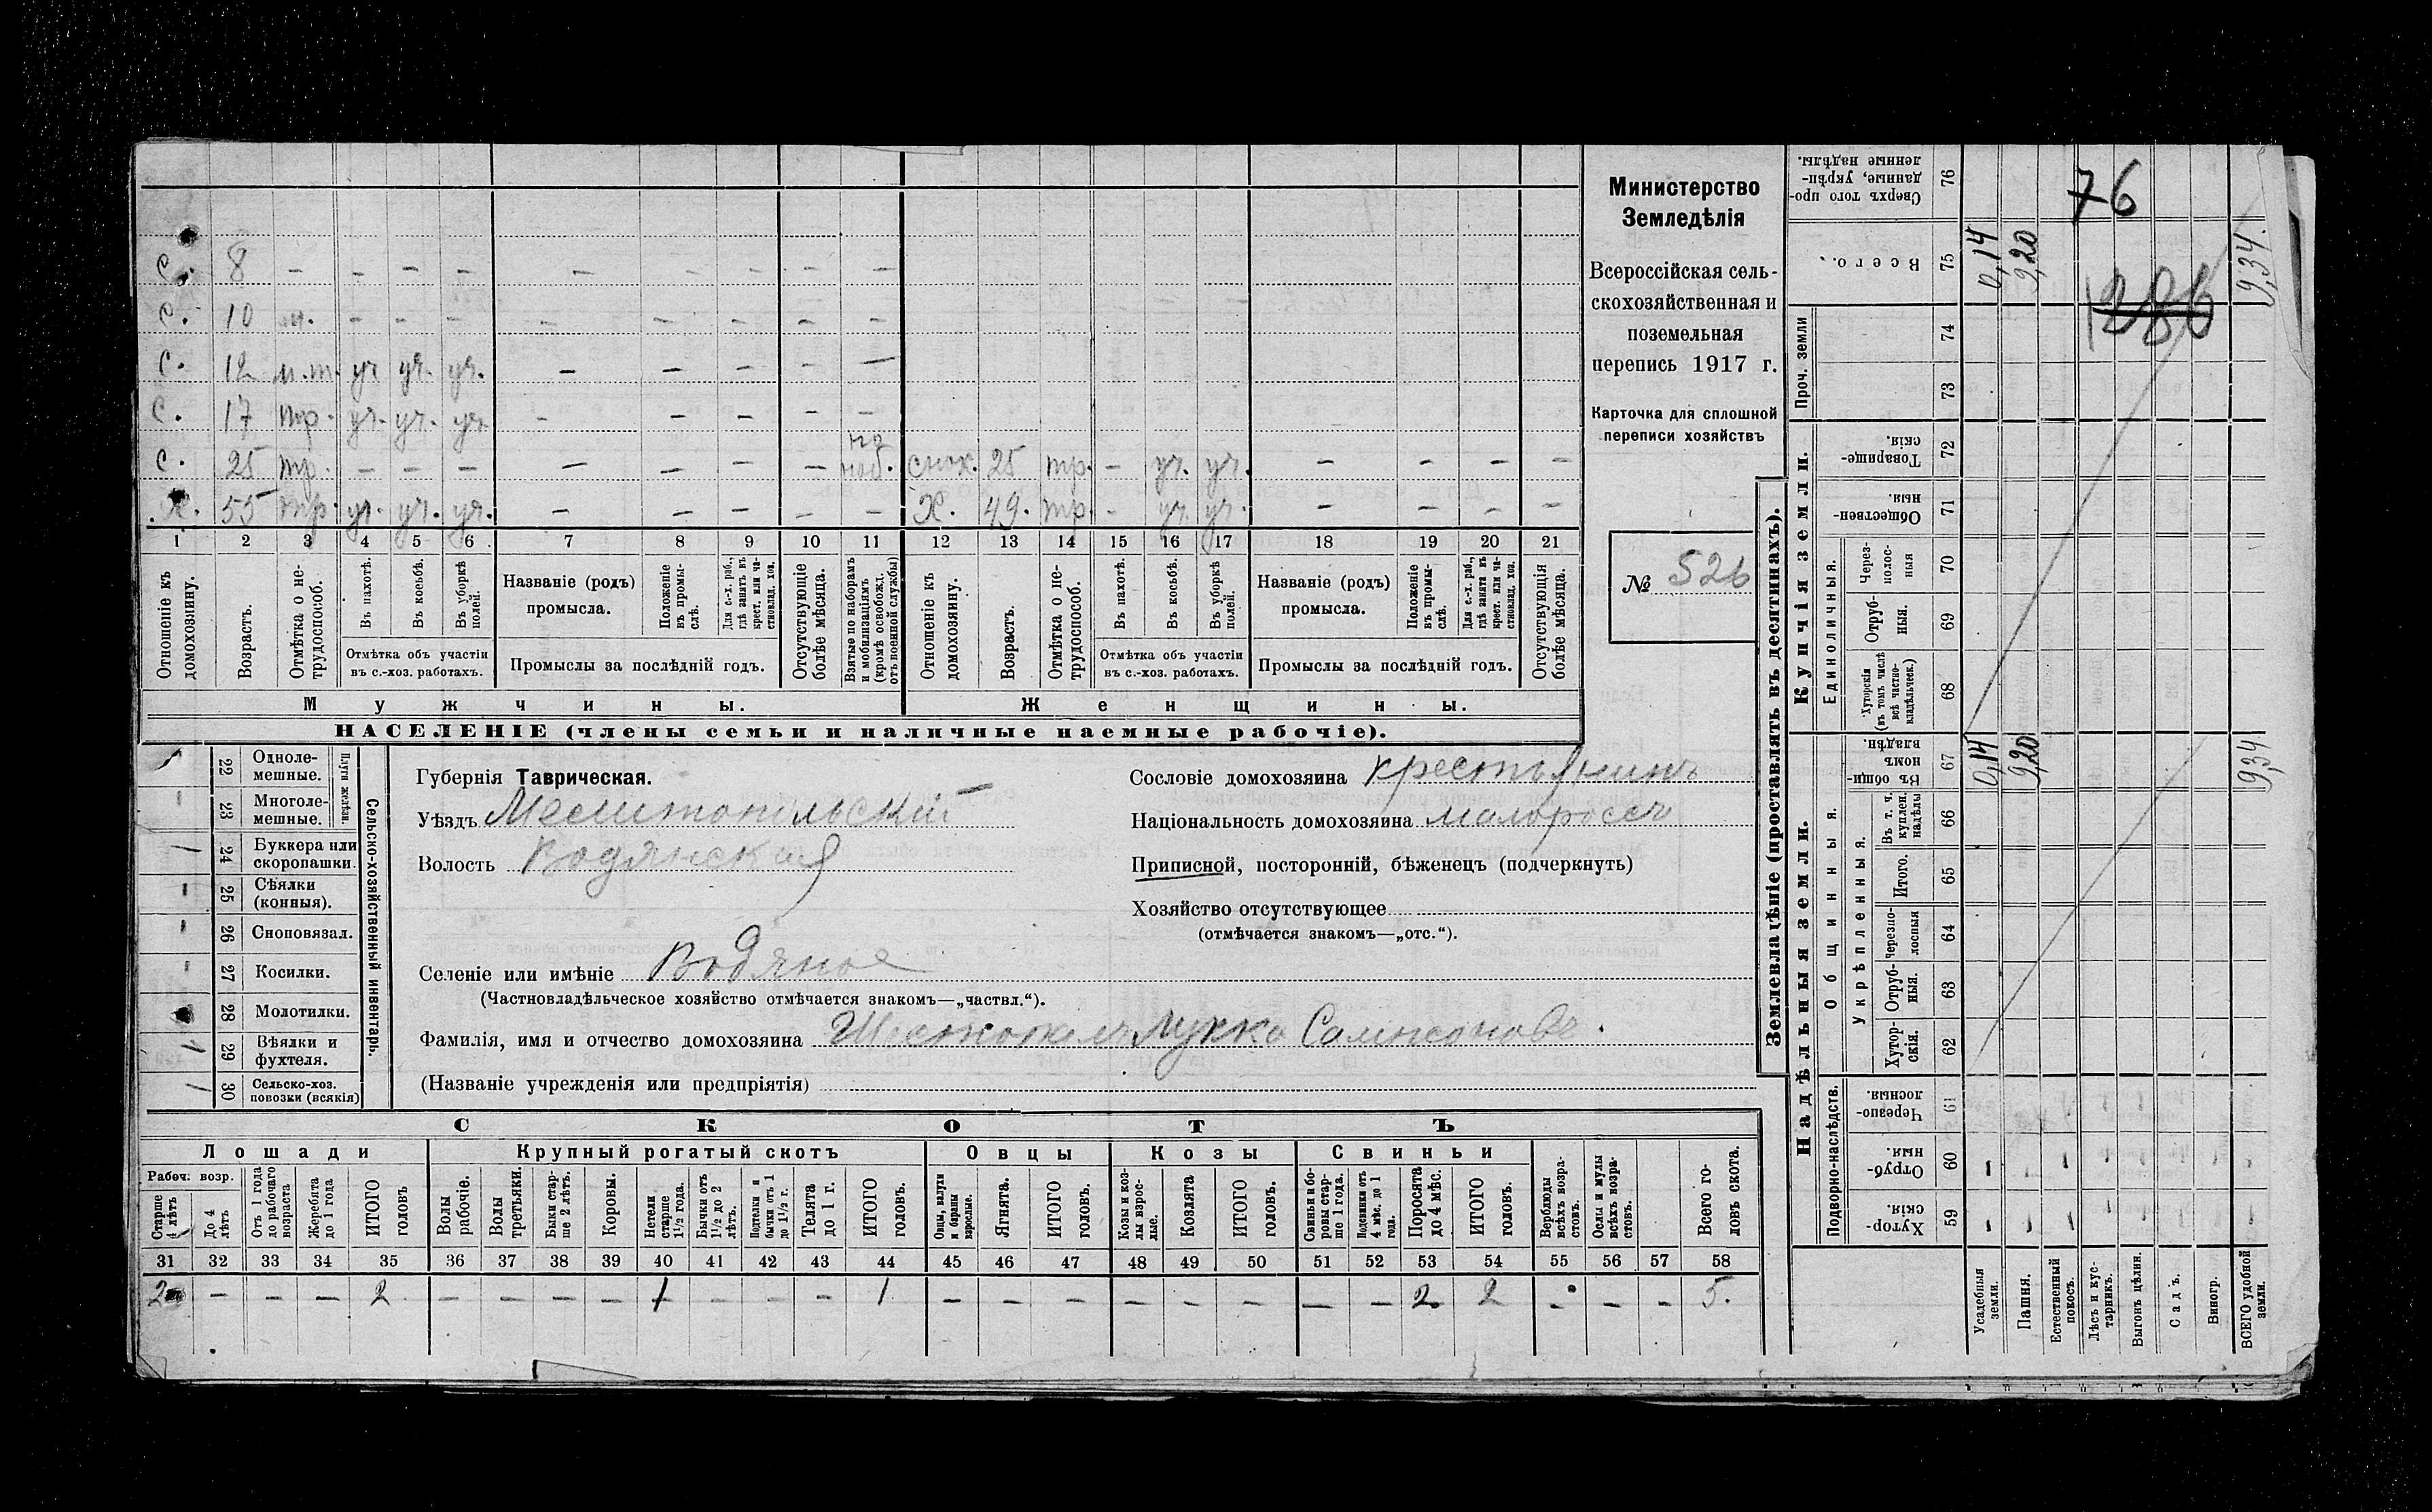 С. 8 – – – – – – – – –
С. 10 н. – – – – – – – –
С. 12 п.т. уч. уч. уч. – – – – –
С. 17 тр. уч. уч. уч. – – – – –
С. 25 тр. – – – – – – – по моб. снох. 25 тр. – уч. уч. – – – –
Х. 55 тр. уч. уч. уч. – – – – – Х. 49. тр. – уч. уч. – – – –
1 2 3 4 5 6 7 8 9 10 11 12 13 14 15 16 17 18 19 20 21
Отношеніе къ домохозяину.
Возрастъ.
Отмѣтка о не-трудоспособ.
Въ пахотѣ.
Въ косьбѣ.
Въ уборкѣ полей.
Названіе (родъ) промысла.
Положеніе въ промы-слѣ.
Для с.-х. раб., гдѣ занятъ въ крест. или ча-стновлад. хоз.
Отсутствующіе болѣе мѣсяца.
Взятые по наборамъ и мобилизаціямъ (кромѣ освобожд. отъ военной службы)
Отношеніе къ домохозяину.
Возрастъ.
Отмѣтка о не-трудоспособ.
Въ пахотѣ.
Въ косьбѣ.
Въ уборкѣ полей.
Названіе (родъ) промысла.
Положеніе въ промы-слѣ.
Для с.-х. раб., гдѣ занята въ крест. или ча-стновлад. хоз.
Отсутствующія болѣе мѣсяца.
Отмѣтка объ участіи въ с.-хоз. работахъ.
Промыслы за послѣдній годъ.
Отмѣтка объ участіи въ с.-хоз. работахъ.
Промыслы за послѣдній годъ.
Мужчины.
Женщины.
НАСЕЛЕНІЕ (члены семьи и наличные наемные рабочіе).
Министерство
Земледѣлія
Всероссійская сель-
скохозяйственная и
поземельная
перепись 1917 г.
Карточка для сплошной
переписи хозяйствъ
№ 526
Сельско-хозяйственный инвентарь.
Плуги желѣзн.
1 22 Одноле-мешные.
– 23 Многоле-мешные.
1 24 Буккера или скоропашки.
– 25 Сѣялки (конныя).
– 26 Сноповязал.
– 27 Косилки.
28 Молотилки.
1 29 Вѣялки и фухтеля.
1 30 Сельско-хоз. повозки (всякія)
Губернія Таврическая.
Уѣздъ Мелитопольскій
Волость Водянская
Селеніе или имѣніе Водяное
(Частновладѣльческое хозяйство отмѣчается знакомъ—„частвл.“).
Фамилія, имя и отчество домохозяина Шестопалъ Лукка Самсоновъ.
(Названіе учрежденія или предпріятія)
Сословіе домохозяина крестьянинъ
Національность домохозяина малороссъ
Приписной, посторонній, бѣженецъ (подчеркнуть)
Хозяйство отсутствующее
(отмѣчается знакомъ—„отс.“).
СКОТЪ
Лошади
Крупный рогатый скотъ
Овцы
Козы
Свиньи
Рабоч. возр.
Старше 4 лѣтъ
До 4 лѣтъ
Отъ 1 года до рабочаго возраста
Жеребята до 1 года
ИТОГО головъ
Волы рабочіе.
Волы третьяки.
Быки стар-ше 2 лѣтъ.
Коровы.
Нетели старше 1½ года.
Бычки отъ 1½ до 2 лѣтъ.
Подтелки и бычки отъ 1 до 1½ г.
Телята до 1 г.
ИТОГО головъ.
Овцы, валухи и бараны взрослые.
Ягнята.
ИТОГО головъ.
Козы и коз-лы взрос-лые.
Козлята
ИТОГО головъ.
Свиньи и бо-ровы стар-ше 1 года.
Подсвинки отъ 4 мѣс. до 1 года.
Поросята до 4 мѣс.
ИТОГО головъ.
Верблюды всѣхъ возра-стовъ.
Ослы и мулы всѣхъ возра-стовъ.
Всего го-ловъ скота.
31 32 33 34 35 36 37 38 39 40 41 42 43 44 45 46 47 48 49 50 51 52 53 54 55 56 57 58
2 – – – 2 – – – – 1 – – – 1 – – – – – – – – 2 2 – – – 5.
Землевладѣніе (проставлять въ десятинахъ).
Купчія земли.
Надѣльныя земли.
Проч. земли
Единоличныя.
Общинныя.
Укрѣпленныя.
Подворно-наслѣдств.
Сверхъ того про-данные, укрѣп-ленные надѣлы. 76
Всего. 75 0,14 9,20 9,34.
74
73
Товарище-скія. 72
Обществен-ныя. 71
Через-полос-ныя 70
Отруб-ныя. 69
Хуторскія (въ томъ числѣ всѣ частно-владѣльческ.) 68
Въ общин-номъ владѣн. 67 0,14 9,20 9,34
Въ т. ч. куплен. надѣлы 66
Итого. 65
Черезпо-лосныя 64
Отруб-ныя. 63
Хутор-скія. 62
Черезпо-лосныя. 61
Отруб-ныя. 60
Хутор-скія. 59
Усадебныя земли.
Пашня.
Естественный покосъ.
Лѣсъ и кус-тарникъ.
Выгонъ цѣлин.
Садъ.
Виногр.
ВСЕГО удобной земли.
76
1286